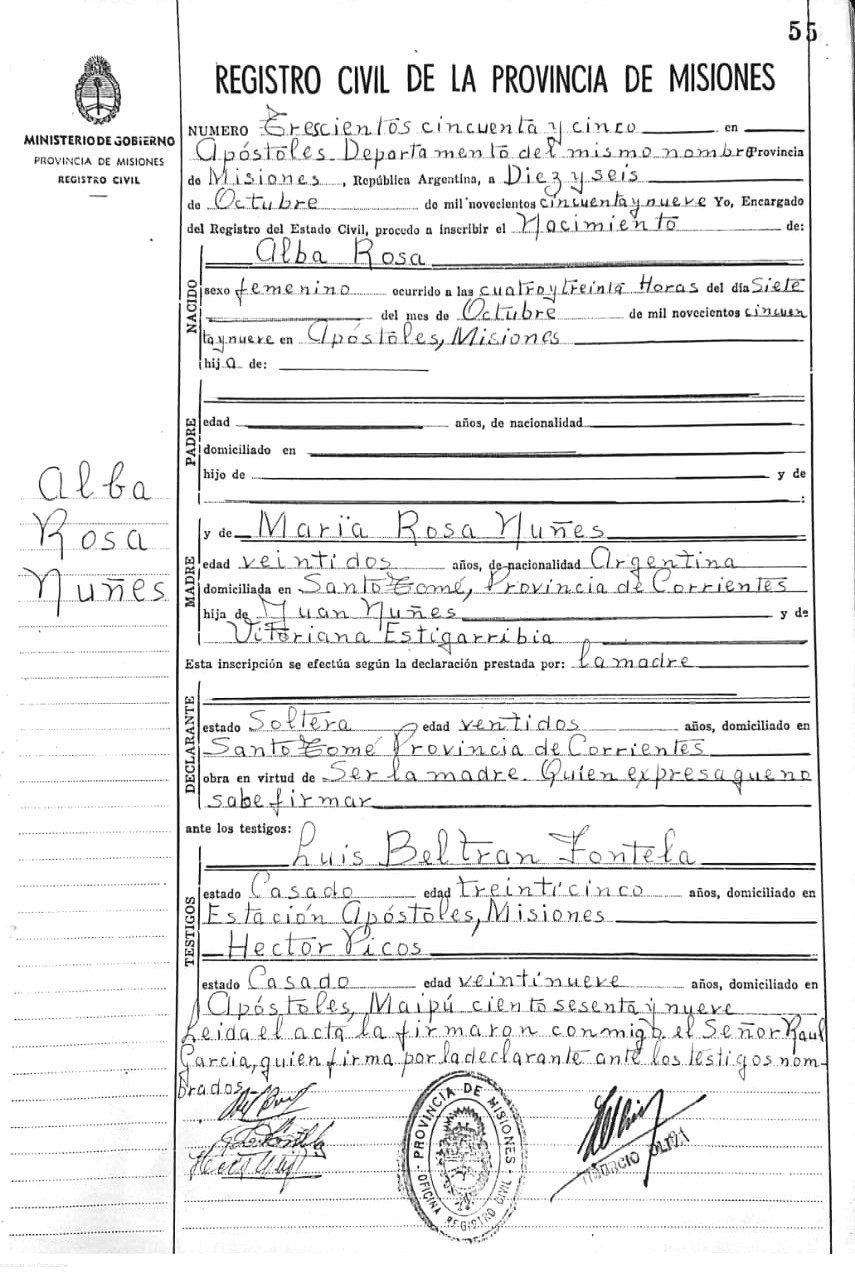 55
REGISTRO CIVIL DE LA PROVINCIA DE MISIONES
MINISTERIO DE GOBIERNO
PROVINCIA DE MISIONES
REGISTRO CIVIL
NUMERO Trescientos cincuenta y cinco en
Apóstoles Departamento del mismo nombre Provincia
de Misiones, República Argentina, a Diez y seis
de Octubre de mil novecientos cincuenta y nueve Yo, Encargado
del Registro del Estado Civil, procedo a inscribir el Nacimiento de:
NACIDO
Alba Rosa
sexo femenino ocurrido a las cuatro y treinta Horas del día Siete
del mes de Octubre de mil novecientos cincuen
ta y nueve en Apóstoles, Misiones
hija de:
PADRE
edad años, de nacionalidad
domiciliado en
hijo de y de
:
Alba
Rosa
Nuñes
MADRE
y de María Rosa Nuñes
edad veintidos años, de nacionalidad Argentina
domiciliada en Santo Tomé, Provincia de Corrientes
hija de Juan Nuñes y de
Vitoriana Estigarribia
Esta inscripción se efectúa según la declaración prestada por: la madre
DECLARANTE
estado Soltera edad ventidos años, domiciliado en
Santo Tomé Provincia de Corrientes
obra en virtud de Ser la madre. Quien expresa que no
sabe firmar
ante los testigos:
TESTIGOS
Luis Beltran Fontela
estado Casado edad treinticinco años, domiciliado en
Estación Apóstoles, Misiones
Hector Picos
estado Casado edad veintinueve años, domiciliado en
Apóstoles, Maipú ciento sesenta y nueve
Leida el acta la firmaron conmigo, el Señor Raul
Garcia, quien firma por la declarante ante los testigos nom-
brados.
PROVINCIA DE MISIONES
OFICINA REGISTRO CIVIL